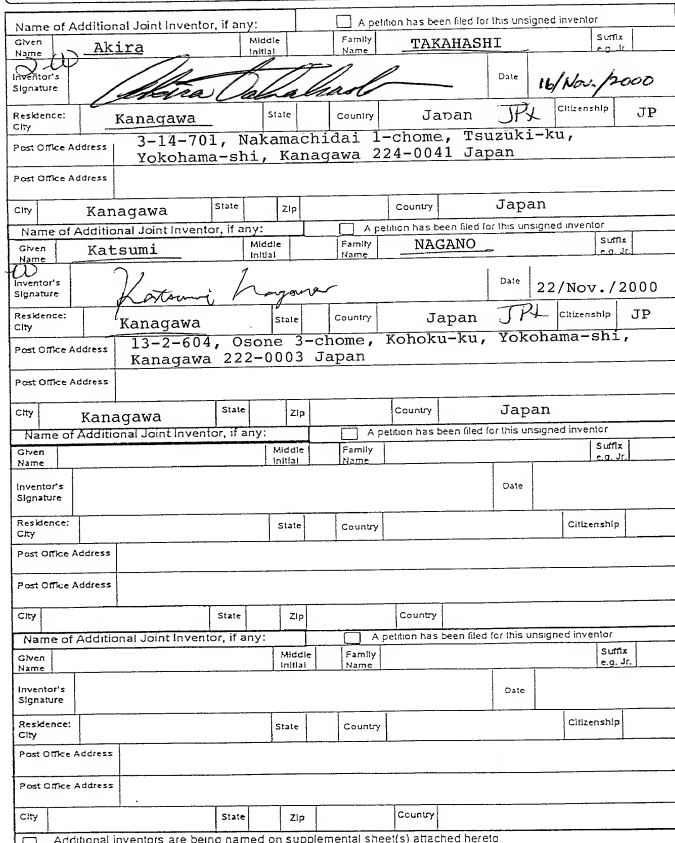 Name of Additional Joint Inventor, if any: A petition has been filed for this unsigned inventor
Given Name Akira Middle Initial Family Name TAKAHASHI Suffix e.g. Jr.
Inventor's Signature Akira Takahashi Date 16/Nov./2000
Residence: City Kanagawa State Country Japan JPX Citizenship JP
Post Office Address 3-14-701, Nakamachidai 1-chome, Tsuzuki-ku,
Yokohama-shi, Kanagawa 224-0041 Japan
Post Office Address
City Kanagawa State Zip Country Japan
Name of Additional Joint Inventor, if any: A petition has been filed for this unsigned inventor
Given Name Katsumi Middle Initial Family Name NAGANO Suffix e.g. Jr.
Inventor's Signature Katsumi Nagano Date 22/Nov./2000
Residence: City Kanagawa State Country Japan JPX Citizenship JP
Post Office Address 13-2-604, Osone 3-chome, Kohoku-ku, Yokohama-shi,
Kanagawa 222-0003 Japan
Post Office Address
City Kanagawa State Zip Country Japan
Name of Additional Joint Inventor, if any: A petition has been filed for this unsigned inventor
Given Name Middle Initial Family Name Suffix e.g. Jr.
Inventor's Signature Date
Residence: City State Country Citizenship
Post Office Address
Post Office Address
City State Zip Country
Name of Additional Joint Inventor, if any: A petition has been filed for this unsigned inventor
Given Name Middle Initial Family Name Suffix e.g. Jr.
Inventor's Signature Date
Residence: City State Country Citizenship
Post Office Address
Post Office Address
City State Zip Country
Additional inventors are being named on supplemental sheet(s) attached hereto